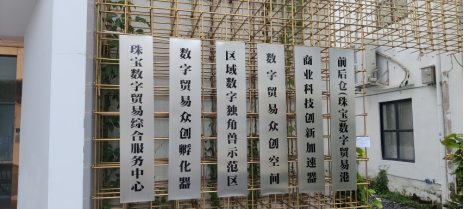 珠宝数字贸易综合服务中心
数字贸易众创孵化器
区域数字独角兽示范区
数字贸易众创空间
商业科技创新加速器
前后仓(珠宝)数字贸易港